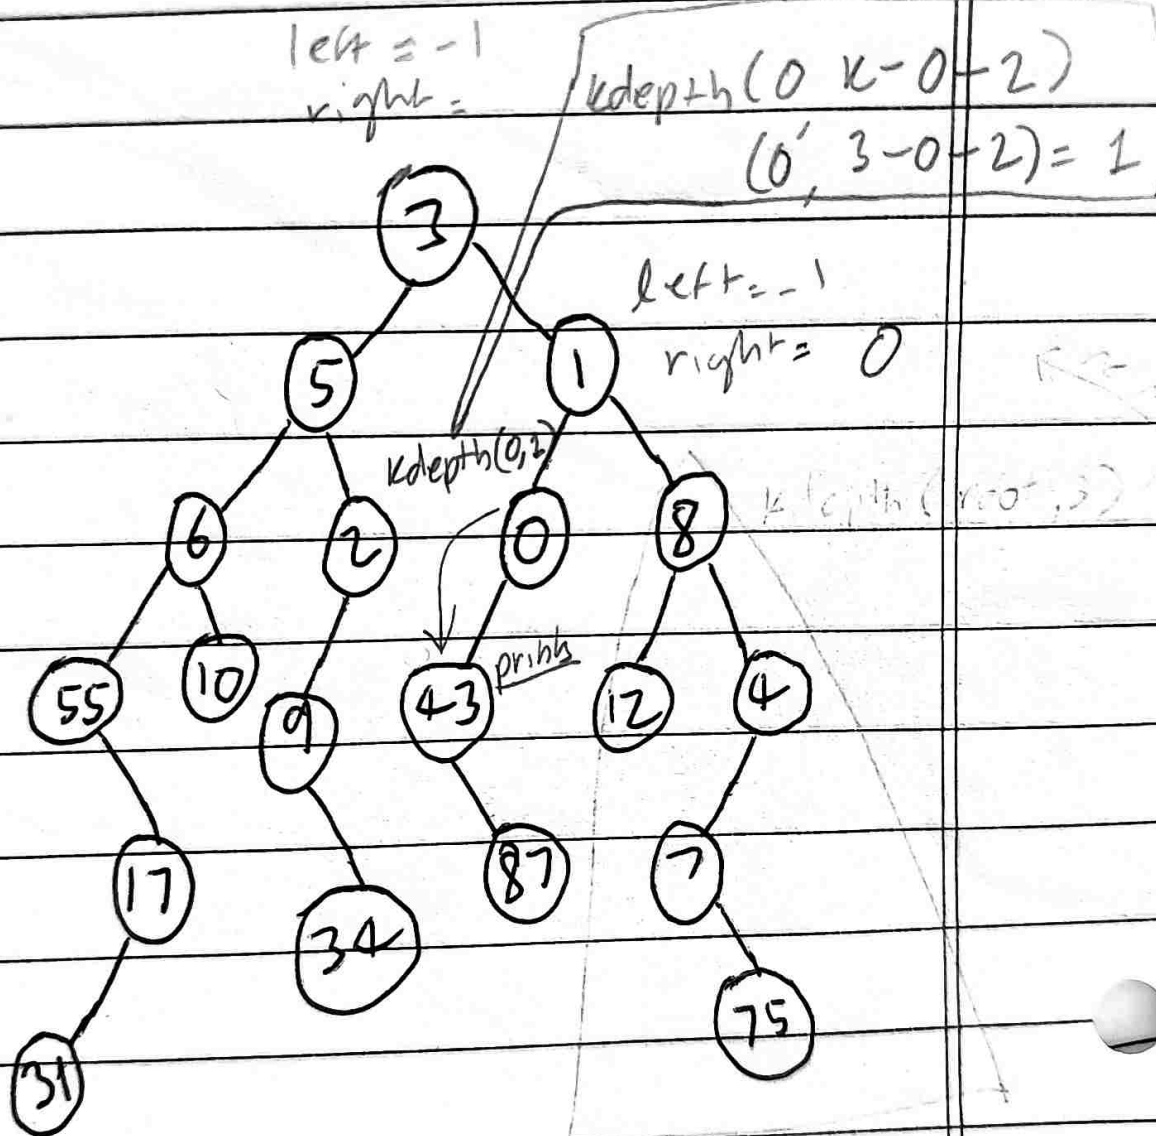 left = -1
right =
kdepth(0 k-0-2)
(0, 3-0-2) = 1
3
left = -1
right = 0
5 1
kdepth(0,1)
6 2 0 8
kdepth(root,3)
prints
55 10 9 43 12 4
17 34 87 7
31 75